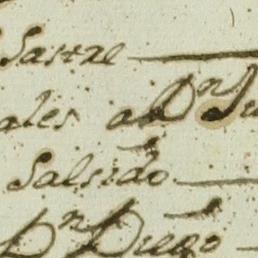 Sastre
ales a Dn Ju
Salsido
Dn Diego